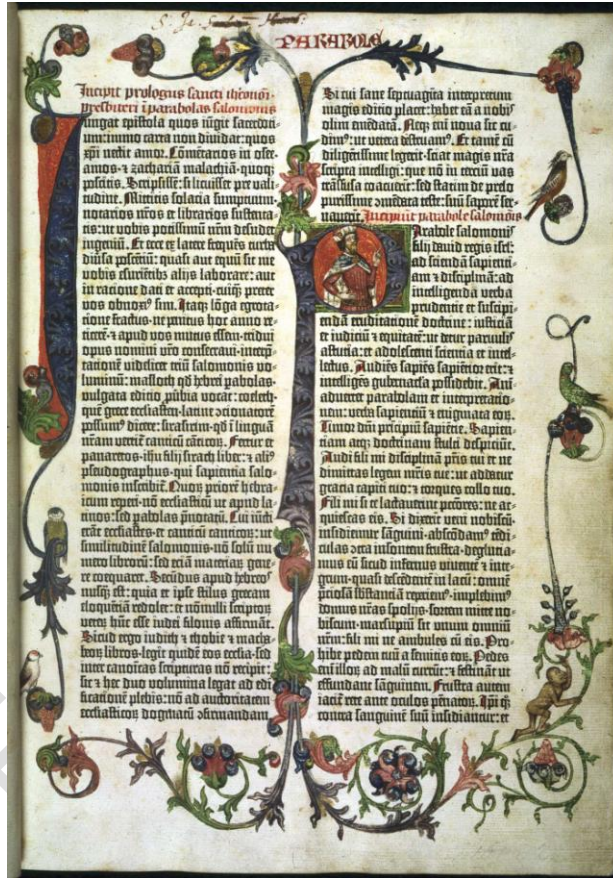 PARABOLE
Incipit prologus sancti iheronimi
presbiteri i parabolas salomonis
Iungat epistola quos iūgit sacerdoti-
um: immo carta non dividat: quos
xp̄i nectit amor. Cōmētarios in osee-
amos · ⁊ zachariā malachiā · quoqꝫ
poscitis. Scripsissē: si licuisset pre vali-
tudine. Mittitis solacia sumptuum ·
notarios nr̄os et librarios sustenta-
tis: ut vobis potissimū nr̄m desudet
ingeniū. Et ecce ex latere frequēs turba
diūsa poscētiū: quasi aut equū sit me
vobis esurientibꝫ alijs laborare: aut
in racione dati et accepti · cuiqꝫ preter
vos obnoxiꝰ sim. Itaqꝫ lōga egrota-
tione fractus · ne penitus hoc anno re-
ticerē · ⁊ apud vos mutus essem · tridui
opus nomini vr̄o consecravi · interp̄-
tationē videlicet triū salomonis vo-
luminū: masloth qd̄ hebrei pabolas ·
vulgata editio ꝓūbia vocat: coeleth ·
quē grece ecclesiasten · latine ↄcionatorē
possumꝰ dicere: sirasirim · qd̄ i linguā
nr̄am vertit̄ canticū cāticoꝝ. Fertur et
panaretos · ihu filij sirach liber: ⁊ aliꝰ
pseudographus · qui sapientia salo-
monis inscribit̄. Quoꝝ priorē hebra-
icum reperi · nō ecclesiasticū ut apud la-
tinos: sed pabolas p̄notatū. Cui iūcti
erāt ecclesiastes · et canticū canticoꝝ: ut
similitudinē salomonis · nō solū nu-
mero librorū: sed etiā materiaꝝ gene-
re coequaret. Secūdus apud hebreos
nusqꝫ est: quia et ipse stilus grecam
eloquētiā redolet: et nōnulli scriptoꝝ
veteꝝ hūc esse iudei filonis affirmāt.
Sicud ergo iudith ⁊ thobie ⁊ macha-
beoꝝ libros · legit quidē eos ecclesia · sed
inter canonicas scripturas nō recipit:
sic ⁊ hec duo volumina legat ad edi-
ficationē plebis: nō ad auctoritatem
ecclesiasticoꝝ dogmatū ↄfirmandam.
Si cui sane septuaginta interpretum
magis editio placet: habet eā a nobis
olim emēdatā. Neqꝫ eni nova sic cu-
dimꝰ: ut vetera destruamꝰ. Et tamē cū
diligētissime legerit · sciat magis nr̄a
scripta intelligi: que nō in terciū vas
trāsfusa coacuerīt: sed statim de prelo
purissime ↄmēdata teste: suū saporē ser-
vaverīt. Incipiūt parabole salomōis
Parabole salomonis
filij david regis isrl̄:
ad sciendā sapienti-
am ⁊ disciplinā: ad
intelligenda verba
prudentie et suscipi-
endā eruditationē doctrine: iusticiā
et iudiciū ⁊ equitatē: ut detur parvulis
astutia: et adolescenti scientia et intel-
lectus. Audiēs sapiēs sapiētior erit: ⁊
intelligēs gubernacla possidebit. Ani-
advertet parabolam et interpretatio-
nem: verba sapientiū ⁊ enigmata eoꝝ.
Timor dn̄i principiū sapiētie. Sapien-
tiam atqꝫ doctrinam stulti despiciūt.
Audi fili mi disciplinā pr̄is tui et ne
dimittas legem mr̄is tue: ut addatur
gracia capiti tuo: ⁊ torques collo tuo.
Fili mi si te lactaverint pctōres: ne ac-
quiescas eis. Si dixerīt veni nobiscū ·
insidiemur sāguini · abscōdamꝰ tēdi-
culas ↄtra insontem frustra · deglutia-
mus eū sicud infernus viventē ⁊ inte-
grum · quasi descēdentē in lacū: omnē
p̄ciosā substantiā reperiemꝰ · implebimꝰ
domus nr̄as spolijs · sortem mitte no-
biscum · marsupiū sit unum omnium
nr̄m: fili mi ne ambules cū eis. Pro-
hibe pedem tuū a semitis eoꝝ. Pedes
eni illoꝝ ad malū currūt: ⁊ festināt ut
effundant sāguinem. Frustra autem
iacit̄ rete ante oculos pēnatoꝝ. Ipi qꝫ
contra sanguinē suū insidiantur: et